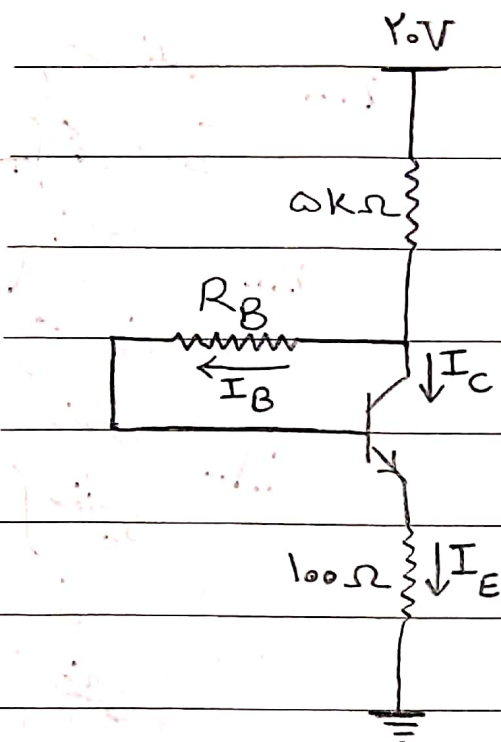 ۲۰V
۵kΩ
R_B
I_B
I_C
۱۰۰Ω
I_E